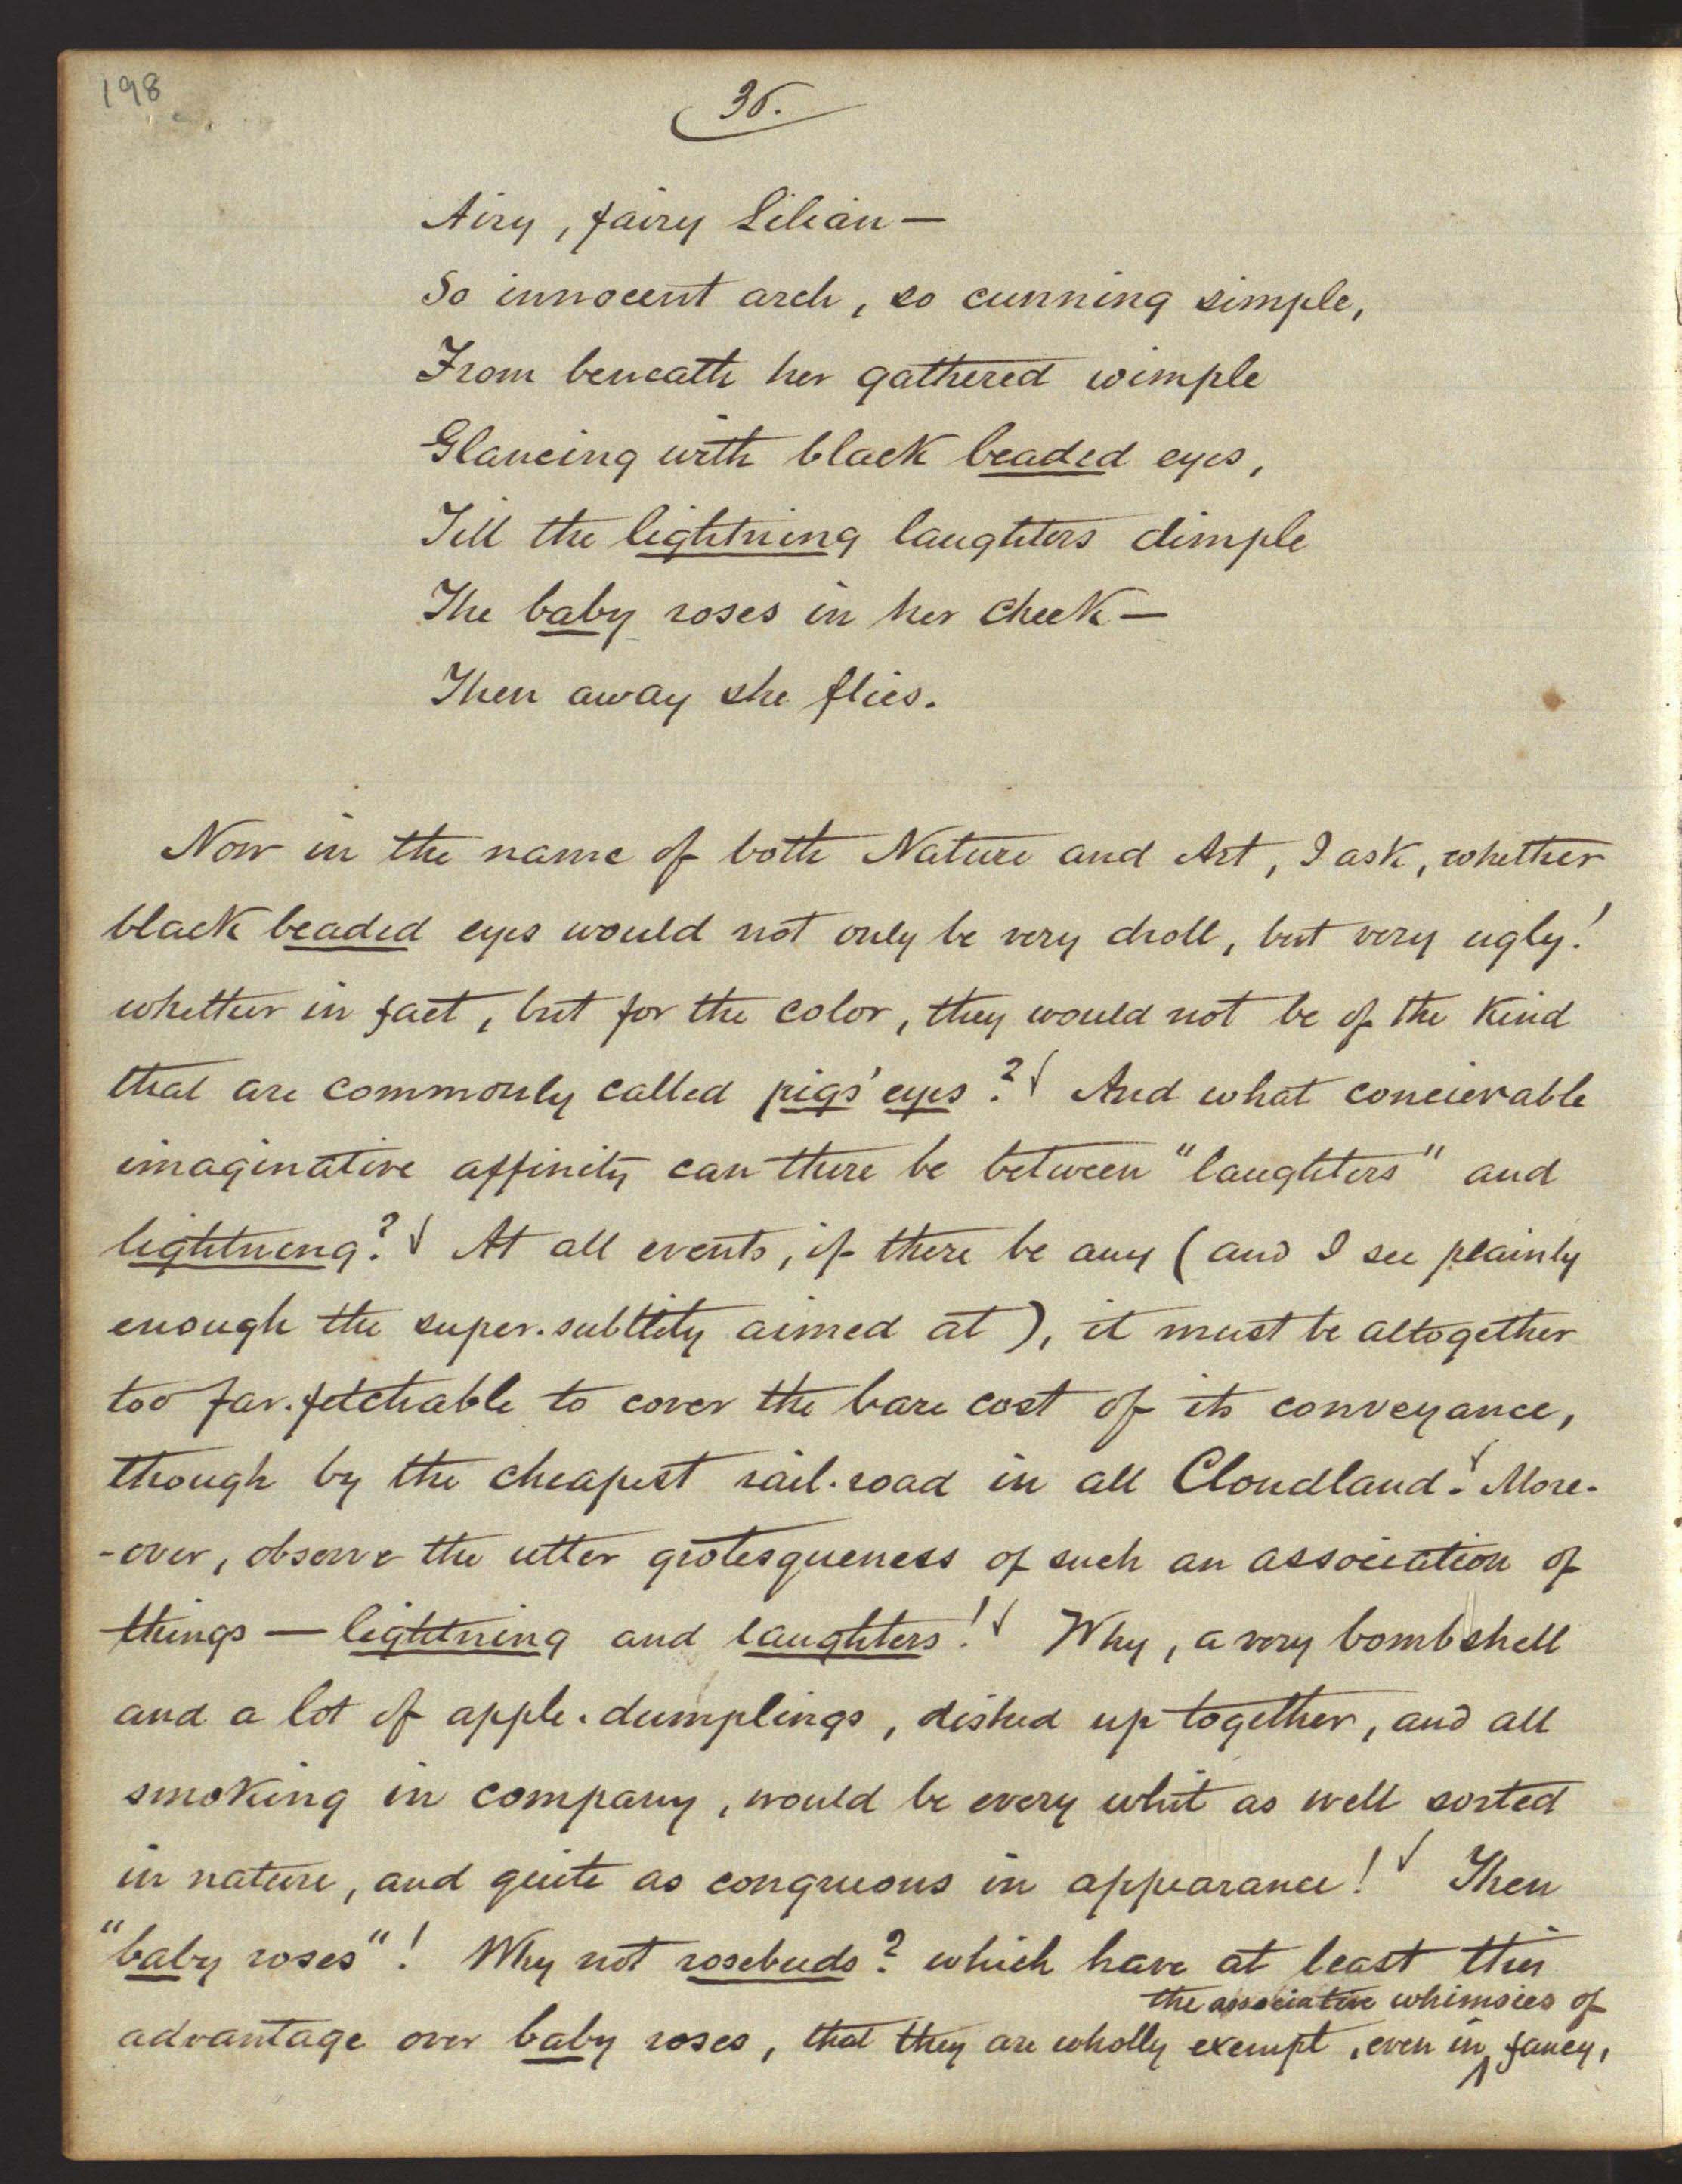 198
36.
Airy, fairy Lilian—
So innocent arch, so cunning simple,
From beneath her gathered wimple
Glancing with black beaded eyes,
Till the lightning laughters dimple
The baby roses in her cheek—
Then away she flies.
Now in the name of both Nature and Art, I ask, whether
black beaded eyes would not only be very droll, but very ugly!
whether in fact, but for the color, they would not be of the kind
that are commonly called pigs' eyes? And what concievable
imaginative affinity can there be between "laughters" and
lightning? At all events, if there be any (and I see plainly
enough the super-subtlety aimed at), it must be altogether
too far-fetchable to cover the bare cost of its conveyance,
though by the cheapest rail-road in all Cloudland. More-
-over, observe the utter grotesqueness of such an association of
things — lightning and laughters! Why, a very bombshell
and a lot of apple-dumplings, dished up together, and all
smoking in company, would be every whit as well sorted
in nature, and quite as congruous in appearance! Then
"baby roses"! Why not rosebuds? which have at least this
the associative whimsies of
advantage over baby roses, that they are wholly exempt, even in fancy,